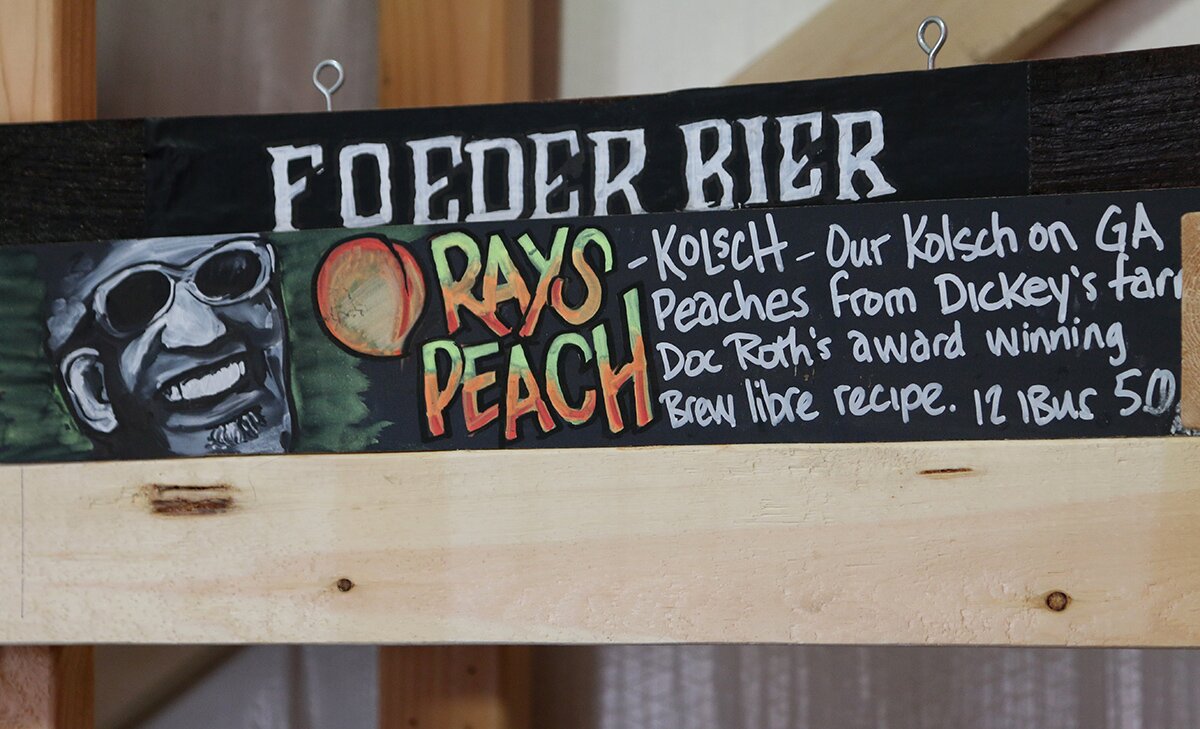 FOEDER BIER
RAYS
PEACH
- KOLSCH - Our Kolsch on GA
Peaches from Dickey's farm
Doc Roth's award winning
Brew libre recipe. 12 IBUS